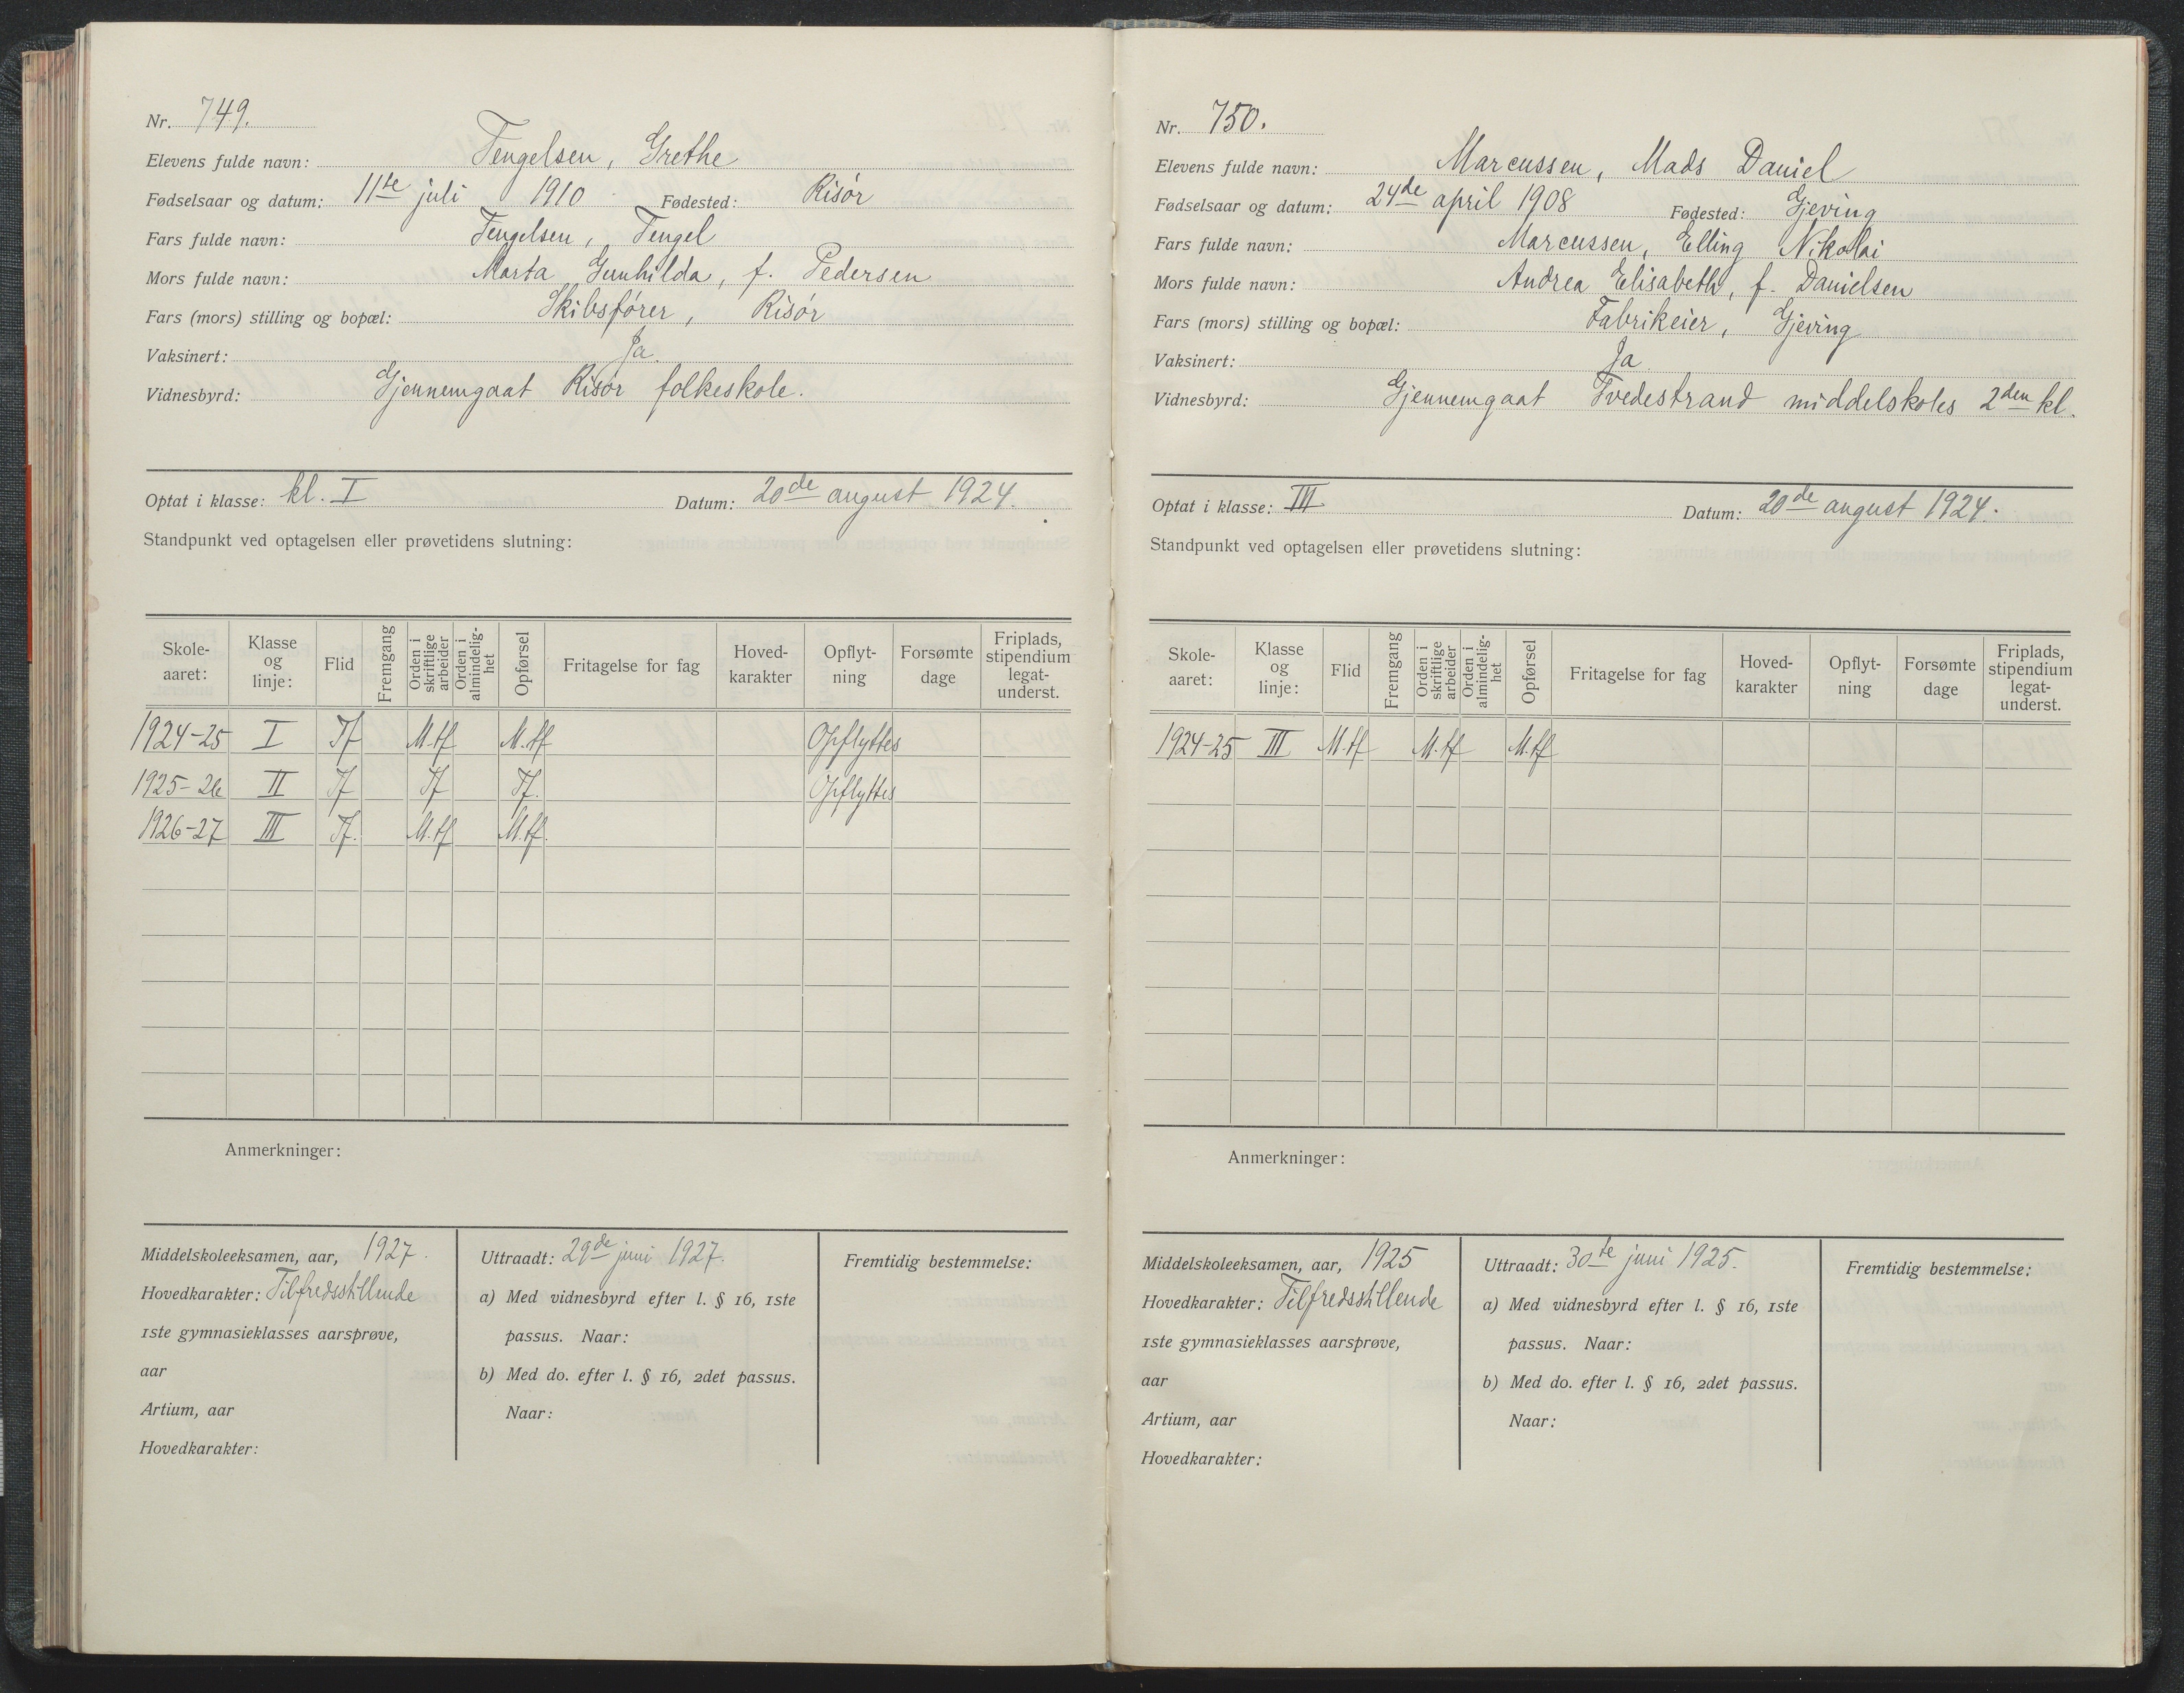 Nr. 749.
Elevens fulde navn: Tengelsen, Grethe
Fødselsaar og datum: 11te juli 1910 Fødested: Risør
Fars fulde navn: Tengelsen, Tengel
Mors fulde navn: Marta Gunhilda, f. Pedersen
Fars (mors) stilling og bopæl: Skibsfører, Risør
Vaksinert: Ja.
Vidnesbyrd: Gjennemgaat Risør folkeskole.
Optat i klasse: kl. I Datum: 20de august 1924.
Standpunkt ved optagelsen eller prøvetidens slutning:
Skole-aaret: Klasse og linje: Flid Fremgang Orden i skriftlige arbeider Orden i almindelig-het Opførsel Fritagelse for fag Hoved-karakter Opflyt-ning Forsømte dage Friplads, stipendium legat-underst.
1924-25 I Tf M.tf M.tf Opflyttes
1925-26 II Tf Tf Tf. Opflyttes
1926-27 III Tf. M.tf M.tf.
Anmerkninger:
Middelskoleeksamen, aar, 1927.
Hovedkarakter: Tilfredsstillende
1ste gymnasieklasses aarsprøve,
aar
Artium, aar
Hovedkarakter:
Uttraadt: 29de juni 1927.
a) Med vidnesbyrd efter l. § 16, 1ste
passus. Naar:
b) Med do. efter l. § 16, 2det passus.
Naar:
Fremtidig bestemmelse:
Nr. 750.
Elevens fulde navn: Marcussen, Mads Daniel
Fødselsaar og datum: 24de april 1908 Fødested: Gjeving
Fars fulde navn: Marcussen, Elling Nikolai
Mors fulde navn: Andrea Elisabeth, f. Danielsen
Fars (mors) stilling og bopæl: Fabrikeier, Gjeving
Vaksinert: Ja
Vidnesbyrd: Gjennemgaat Tvedestrand middelskoles 2den kl.
Optat i klasse: III Datum: 20de august 1924.
Standpunkt ved optagelsen eller prøvetidens slutning:
Skole-aaret: Klasse og linje: Flid Fremgang Orden i skriftlige arbeider Orden i almindelig-het Opførsel Fritagelse for fag Hoved-karakter Opflyt-ning Forsømte dage Friplads, stipendium legat-underst.
1924-25 III M.tf M.tf M.tf
Anmerkninger:
Middelskoleeksamen, aar, 1925
Hovedkarakter: Tilfredsstillende
1ste gymnasieklasses aarsprøve,
aar
Artium, aar
Hovedkarakter:
Uttraadt: 30te juni 1925.
a) Med vidnesbyrd efter l. § 16, 1ste
passus. Naar:
b) Med do. efter l. § 16, 2det passus.
Naar:
Fremtidig bestemmelse: